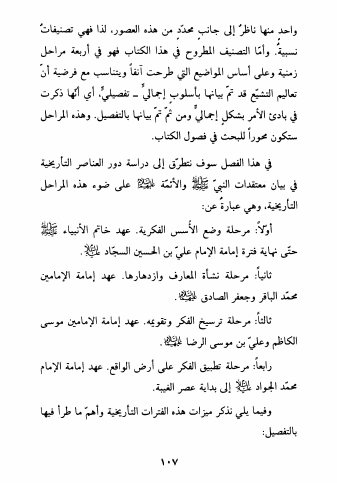 واحد منها ناظرٌ إلى جانبٍ محدّدٍ من هذه العصور، لذا فهي تصنيفاتٌ
نسبيةٌ. وأمّا التصنيف المطروح في هذا الكتاب فهو في أربعة مراحل
زمنية وعلى أساس المواضيع التي طرحت آنفاً ويتناسب مع فرضية أنّ
تعاليم التشيّع قد تمّ بيانها بأسلوبٍ إجماليٍّ ــ تفصيليٍّ، أي أنّها ذكرت
في بادئ الأمر بشكلٍ إجماليٍّ ومن ثمّ تمّ بيانها بالتفصيل. وهذه المراحل
ستكون محوراً للبحث في فصول الكتاب.
في هذا الفصل سوف نتطرّق إلى دراسة دور العناصر التأريخية
في بيان معتقدات النبيّ ﷺ والأئمّة على ضوء هذه المراحل
التأريخية، وهي عبارةٌ عن:
أوّلاً: مرحلة وضع الأُسس الفكرية. عهد خاتم الأنبياء ﷺ
حتّى نهاية فترة إمامة الإمام عليّ بن الحسين السجّاد .
ثانياً: مرحلة نشأة المعارف وازدهارها. عهد إمامة الإمامين
محمّد الباقر وجعفر الصادق .
ثالثاً: مرحلة ترسيخ الفكر وتقويمه. عهد إمامة الإمامين موسى
الكاظم وعليّ بن موسى الرضا .
رابعاً: مرحلة تطبيق الفكر على أرض الواقع. عهد إمامة الإمام
محمّد الجواد إلى بداية عصر الغيبة.
وفيما يلي نذكر ميزات هذه الفترات التأريخية وأهمّ ما طرأ فيها
بالتفصيل:
١٠٧